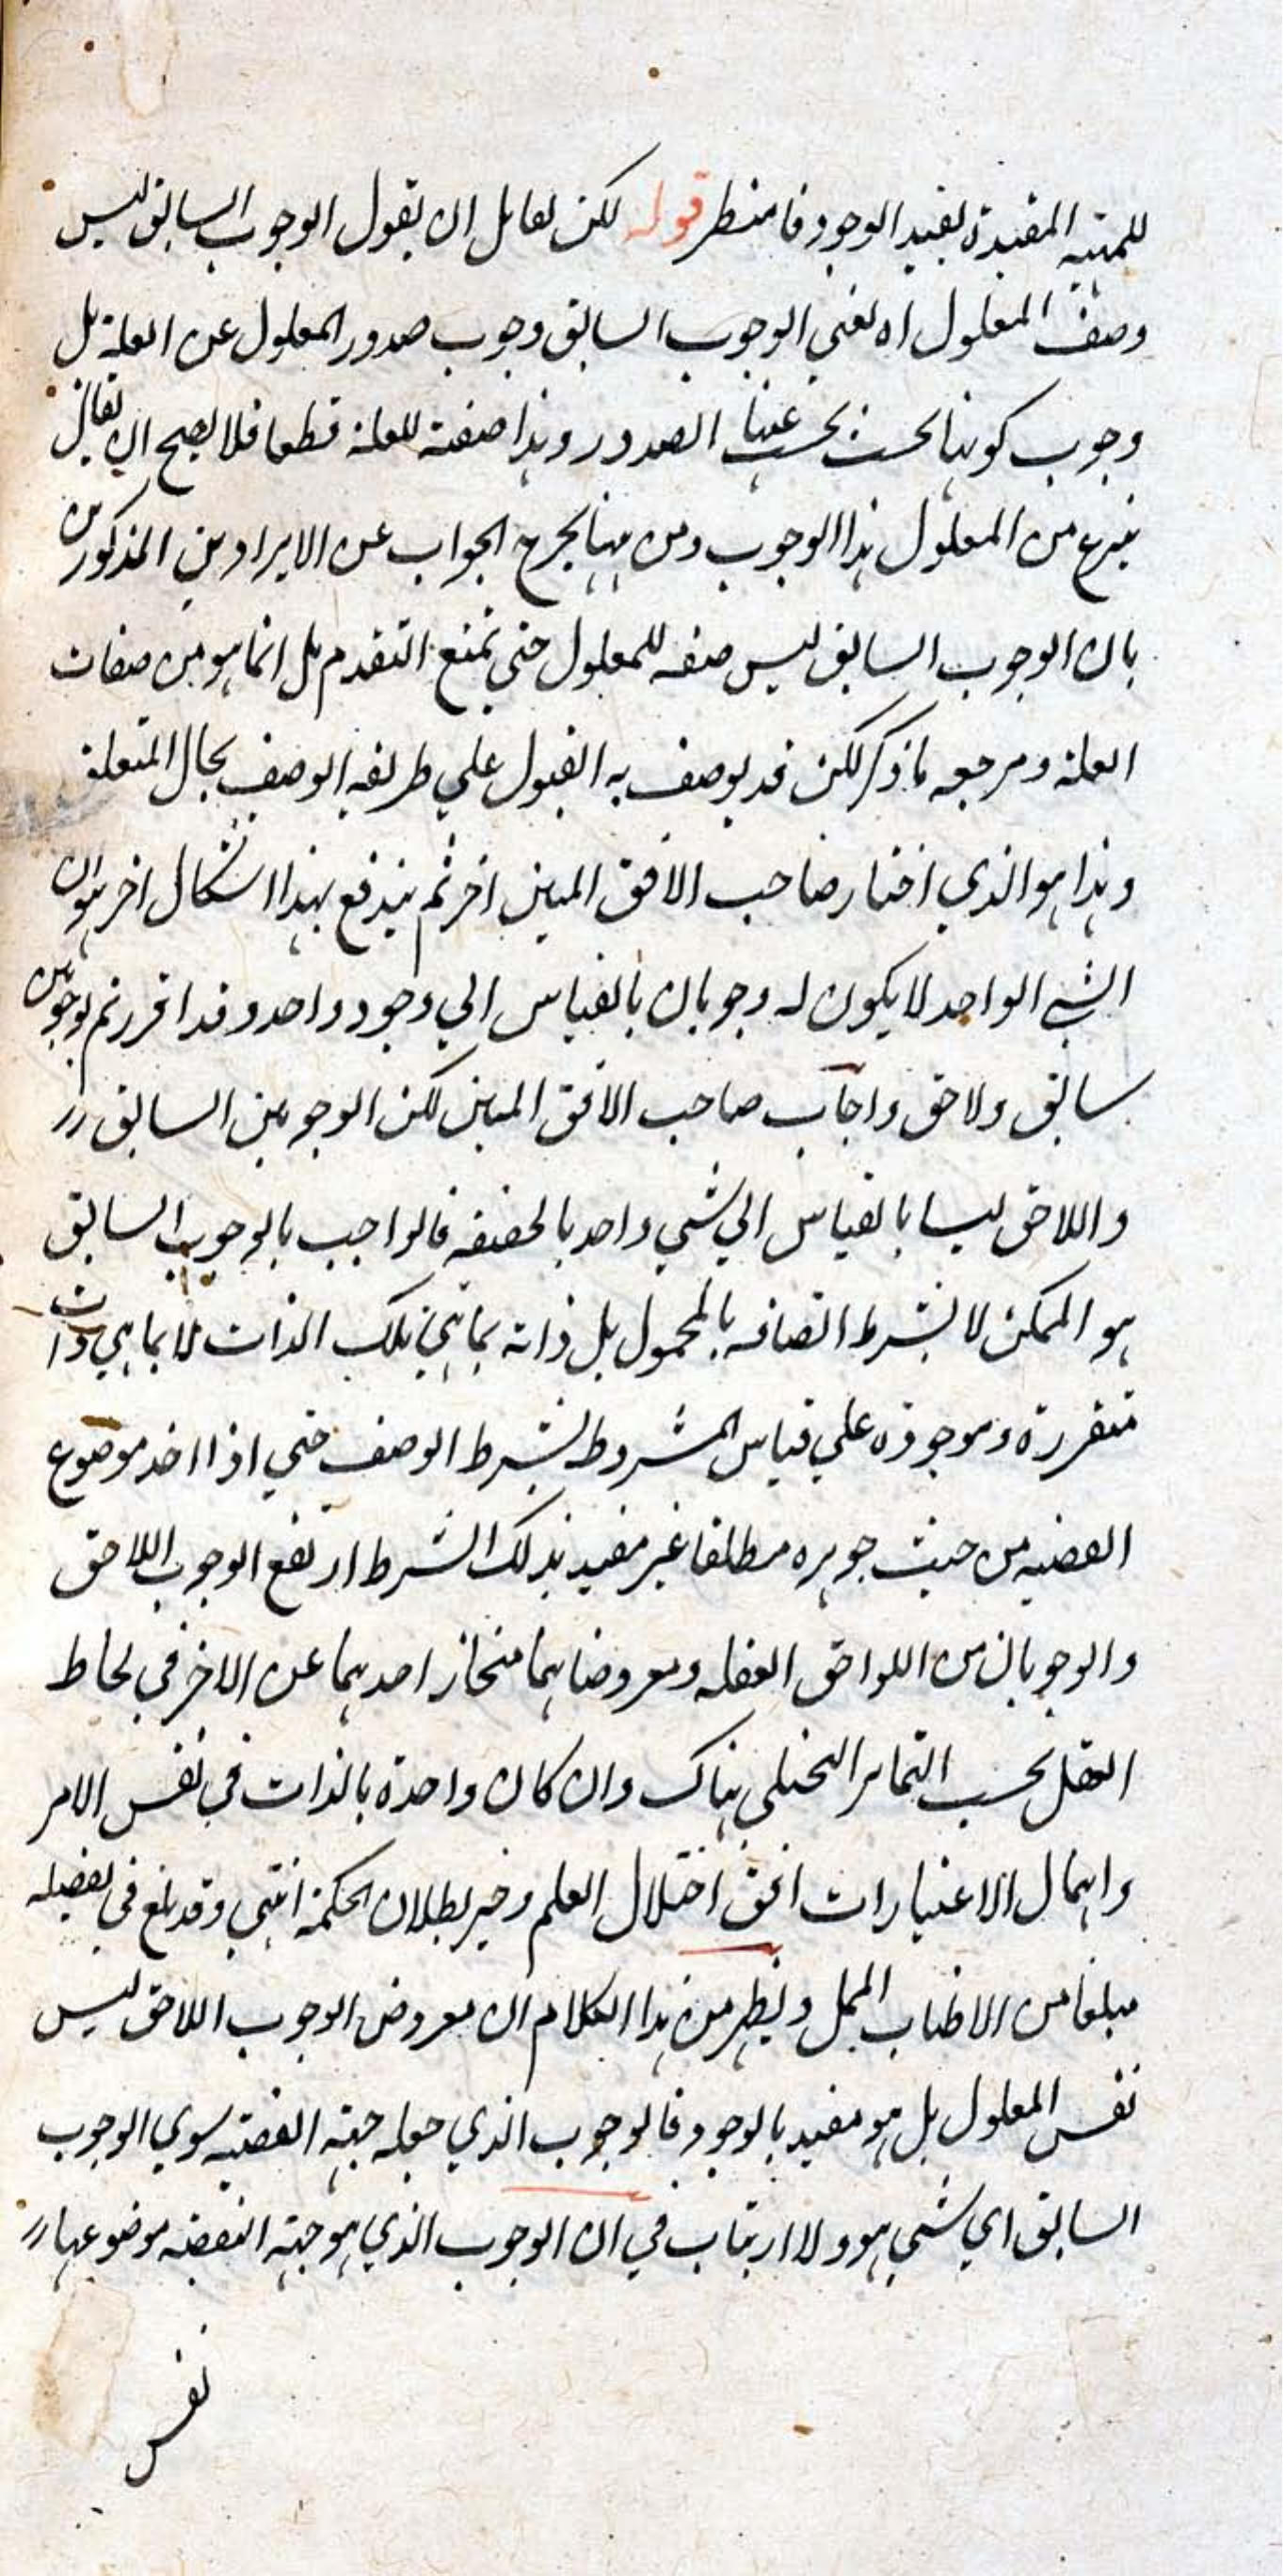 للمهية المقيدة بقيد الوجود فانتظر قوله لكن لقائل ان يقول الوجوب السابق ليس
وصف المعلول اه يعني الوجوب السابق وجوب صدور المعلول عن العلة بل
وجوب كونها بحيث يجب عنها الصدور وهذا صفة للعلة قطعا فلا يصح ان يقال
ينزع من المعلول هذا الوجوب ومن ههنا يخرج الجواب عن الايرادين المذكورين
بان الوجوب السابق ليس صفه للمعلول حتى يمنع التقدم بل انما هو من صفات
العلة ومرجعه ما ذكر لكن قد يوصف به على طريقه الوصف بحال المتعلق
وهذا هو الذي اختار صاحب الافق المبين اخر ثم يندفع بهذا اشكال اخر هو ان
الشي الواحد لا يكون له وجوبان بالقياس الي وجود واحد وقد اقررتم بوجوبين
سابق ولاحق واجاب صاحب الافق المبين لكن الوجوبين السابق
واللاحق ليسا بالقياس الي شي واحد بالحقيقه فالواجب بالوجوب السابق
هو الممكن لا بشرط اتصافه بالمحمول بل ذاته بما هي تلك الذات لا بما هي ذات
متقررة وموجودة علي قياس المشروط بشرط الوصف حتي اذا اخذ موضوع
القضيه من حيث جوهره مطلقا غير مقيد بذلك الشرط ارتفع الوجوب اللاحق
والوجوبان من اللواحق العقليه ومعروضاهما منحاز احدهما عن الاخر في لحاظ
العقل بحسب التمايز التحليلي هناك وان كان واحدة بالذات في نفس الامر
واهمال الاعتبارات افق اختلال العلم وخير بطلان الحكمة انتهي وقد بلغ في تفصيله
مبلغا من الاطناب الممل ويظهر من هذا الكلام ان معروض الوجوب اللاحق ليس
نفس المعلول بل هو مقيد بالوجود فالوجوب الذي جعله جهة القضيه سوي الوجوب
السابق اي شي هو ولا ارتياب في ان الوجوب الذي هو جهة القضيه موضوعها
نفس